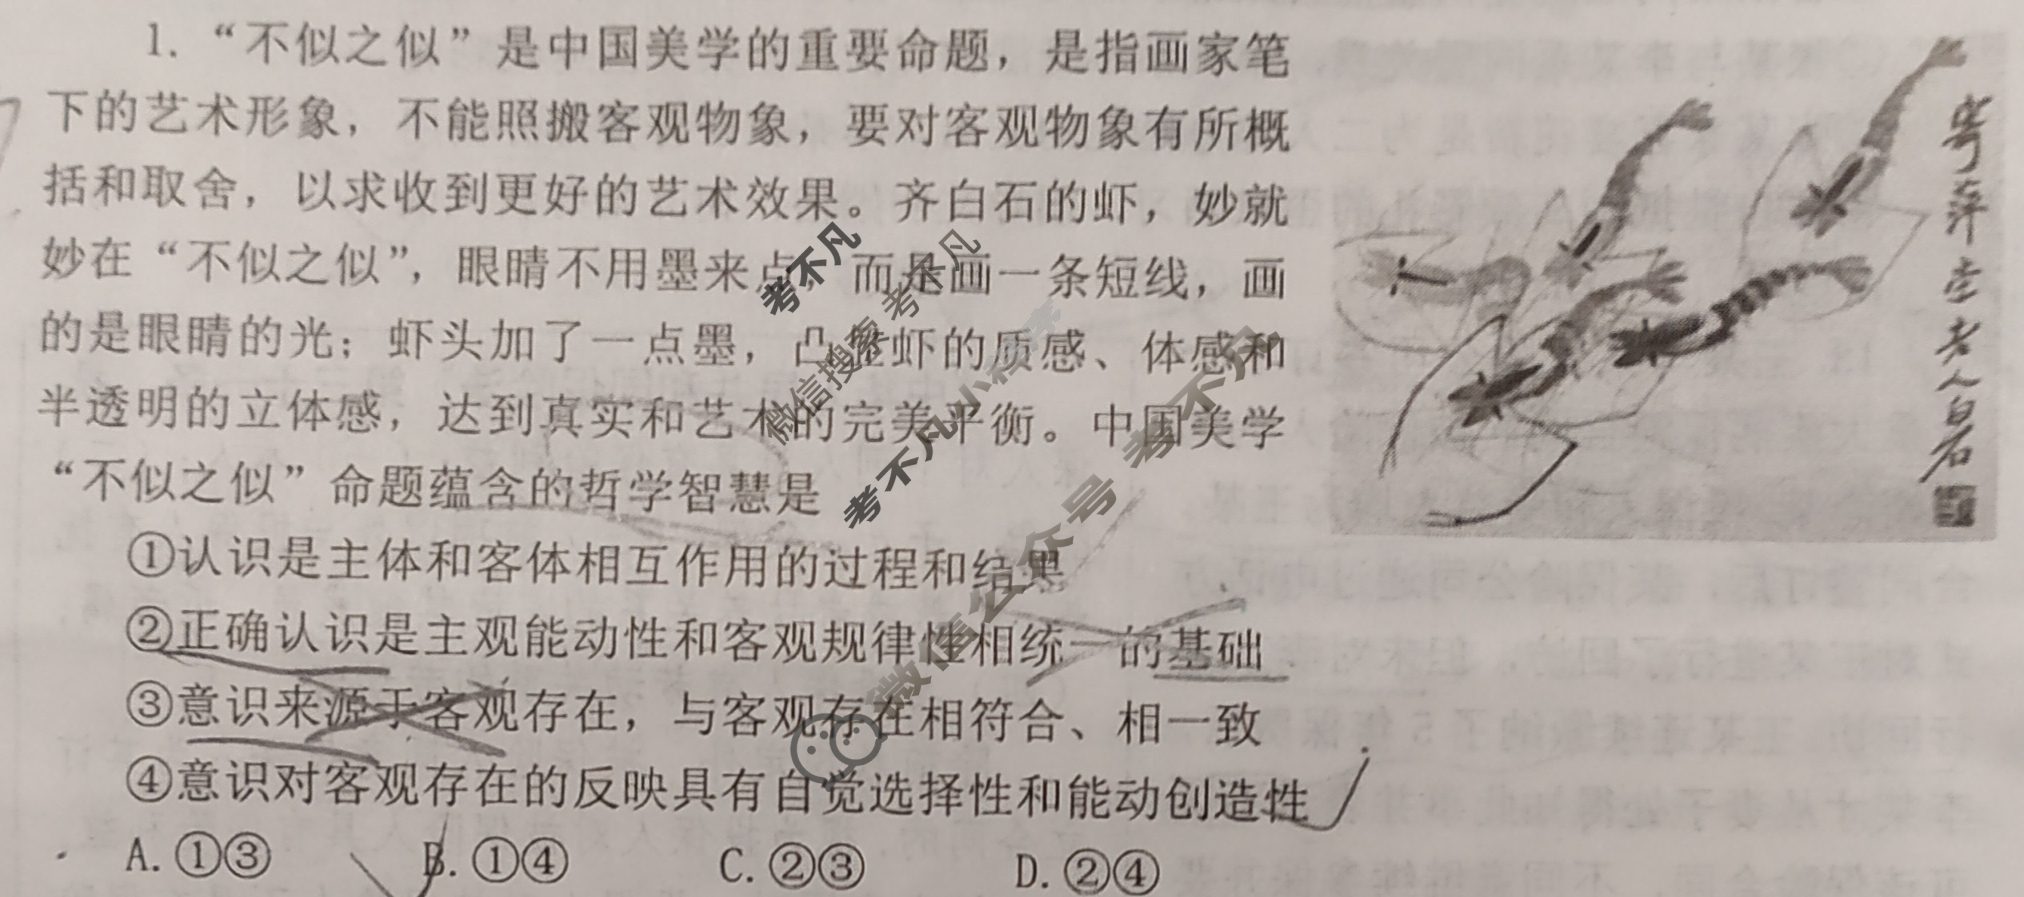 1. “不似之似”是中国美学的重要命题，是指画家笔
下的艺术形象，不能照搬客观物象，要对客观物象有所概
括和取舍，以求收到更好的艺术效果。齐白石的虾，妙就
妙在“不似之似”，眼睛不用墨来点，而是画一条短线，画
的是眼睛的光；虾头加了一点墨，凸显虾的质感、体感和
半透明的立体感，达到真实和艺术的完美平衡。中国美学
“不似之似”命题蕴含的哲学智慧是
①认识是主体和客体相互作用的过程和结果
②正确认识是主观能动性和客观规律性相统一的基础
③意识来源于客观存在，与客观存在相符合、相一致
④意识对客观存在的反映具有自觉选择性和能动创造性
A. ①③ B. ①④ C. ②③ D. ②④
寄萍堂老人白石
考不凡
微信搜索 考不凡
考不凡小程序
微信公众号 考不凡